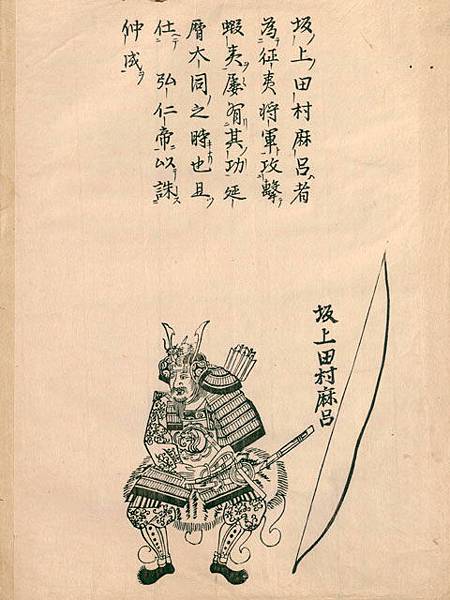 坂上田村麻呂者
為征夷将軍攻撃
蝦夷屡有其功延
暦大同之時也且
仕弘仁帝以誅
仲成
坂上田村麻呂